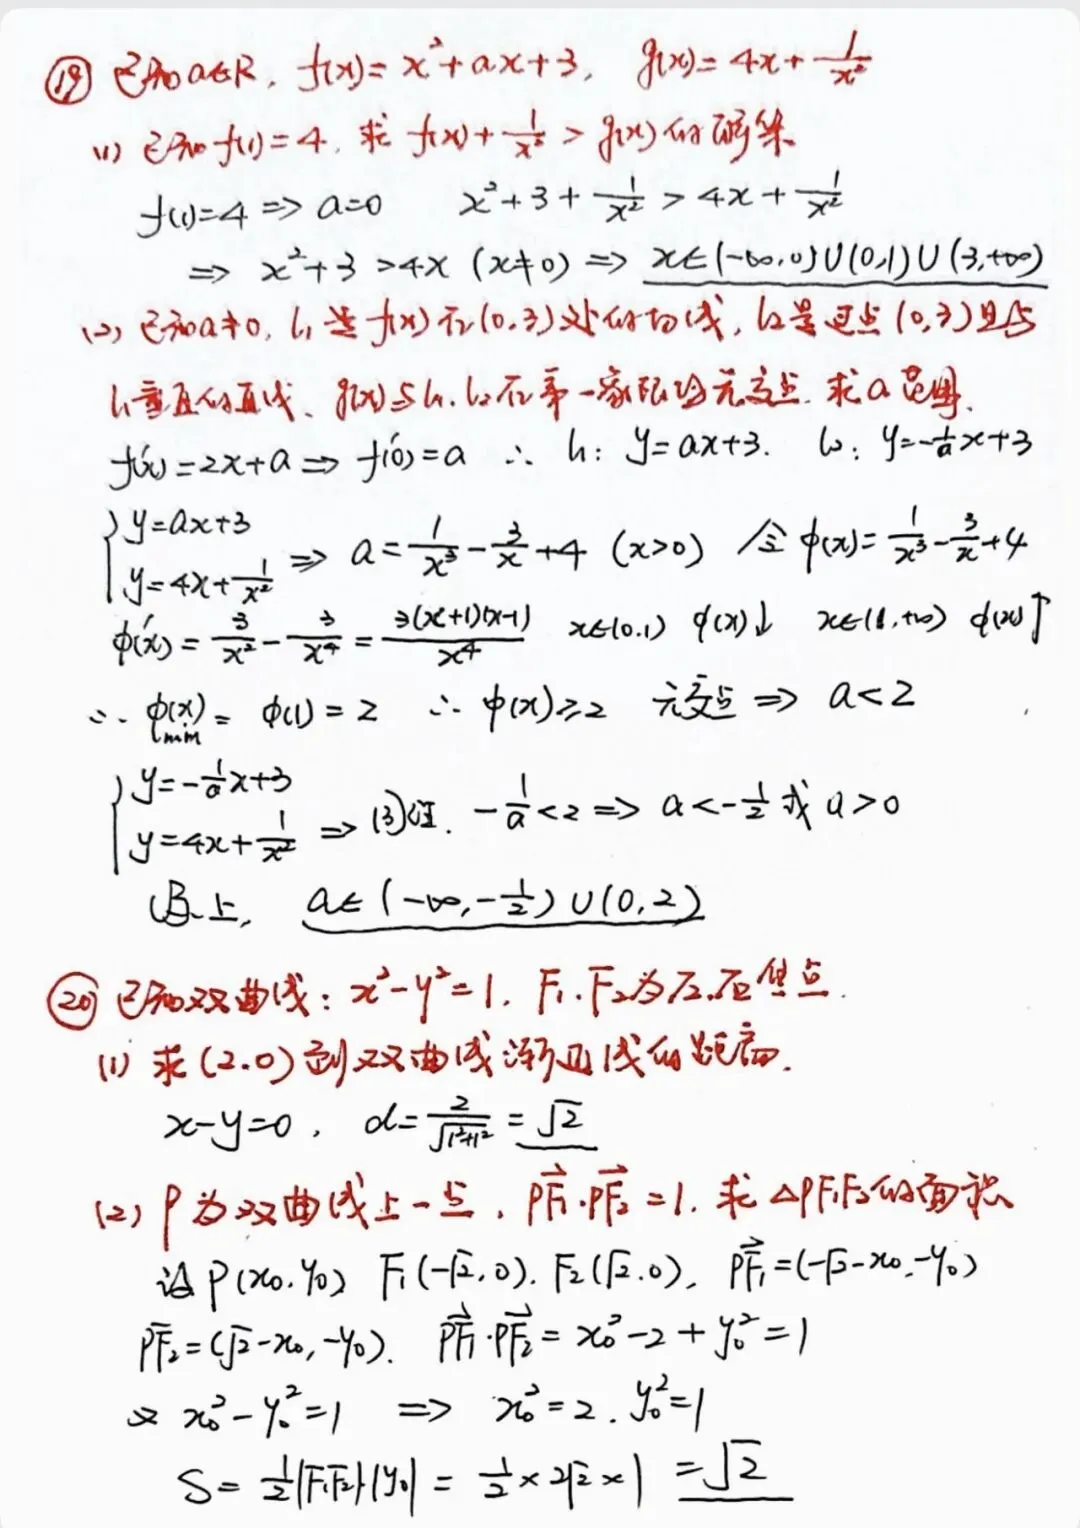 ⑲ 已知a∈R, f(x)=x²+ax+3, g(x)=4x+1/x²
(1) 已知f(1)=4, 求 f(x)+1/x²>g(x)的解集
f(1)=4 ⇒ a=0 x²+3+1/x²>4x+1/x²
⇒ x²+3>4x (x≠0) ⇒ x∈(-∞,0)∪(0,1)∪(3,+∞)
(2) 已知a≠0, l₁是f(x)在(0,3)处的切线, l₂是过点(0,3)且与
l₁垂直的直线、g(x)与l₁、l₂在第一象限均无交点. 求a范围.
f'(x)=2x+a ⇒ f'(0)=a ∴ l₁: y=ax+3. l₂: y=-1/a x+3
{y=ax+3 y=4x+1/x² ⇒ a=1/x³-3/x+4 (x>0) 令φ(x)=1/x³-3/x+4
φ'(x)=3/x²-3/x⁴=3(x+1)(x-1)/x⁴ x∈(0,1) φ(x)↓ x∈(1,+∞) φ(x)↑
∴ φ(x)min=φ(1)=2 ∴ φ(x)≥2 无交点 ⇒ a<2
{y=-1/a x+3 y=4x+1/x² ⇒ 同证. -1/a<2 ⇒ a<-1/2 或 a>0
综上, a∈(-∞,-1/2)∪(0,2)
⑳ 已知双曲线: x²-y²=1, F₁、F₂为左、右焦点.
(1) 求(2,0)到双曲线渐近线的距离.
x-y=0, d=2/√(1²+1²)=√2
(2) P为双曲线上一点, PF₁·PF₂=1, 求△PF₁F₂的面积
设P(x₀,y₀) F₁(-√2,0). F₂(√2,0), PF₁=(-√2-x₀,-y₀)
PF₂=(√2-x₀,-y₀). PF₁·PF₂=x₀²-2+y₀²=1
又 x₀²-y₀²=1 ⇒ x₀²=2. y₀²=1
S=1/2|F₁F₂||y₀|=1/2×2√2×1=√2